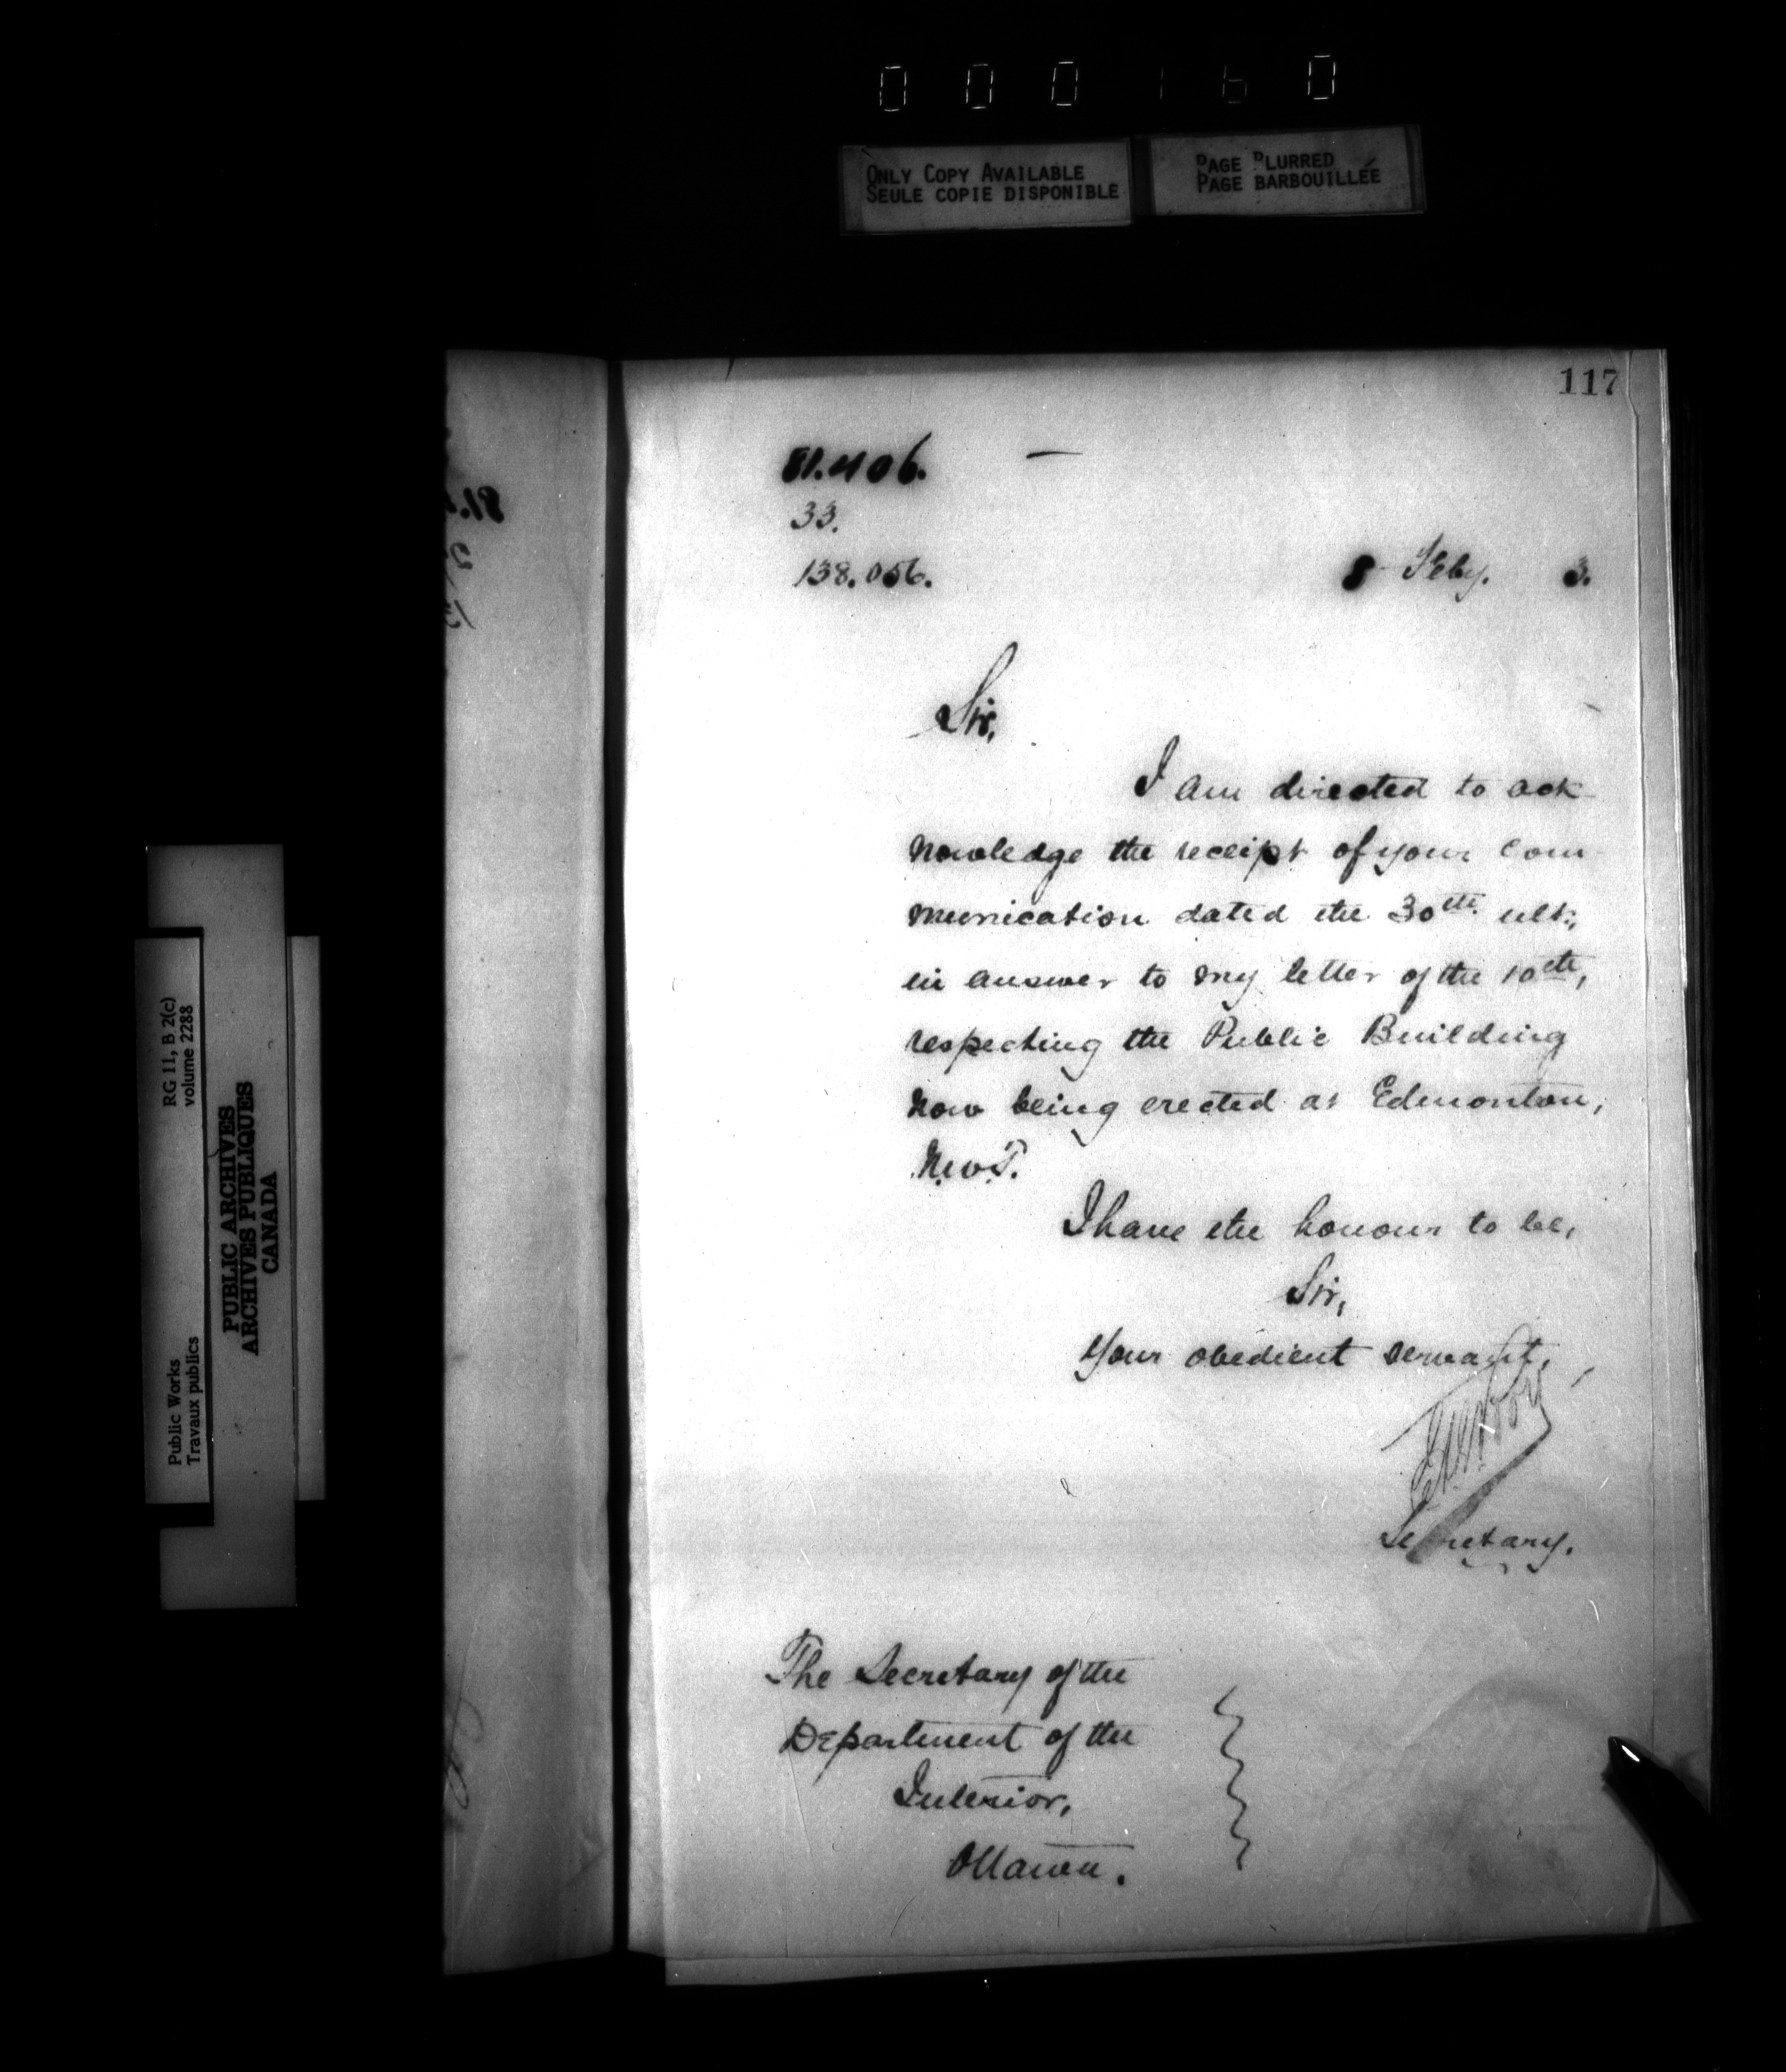 000160
ONLY COPY AVAILABLE
SEULE COPIE DISPONIBLE
PAGE BLURRED
PAGE BARBOUILLÉE
117
81.406.
33.
138.056.
8 Feby. 3.
Sir,
I am directed to ack-
nowledge the receipt of your com-
munication dated the 30th ult.,
in answer to my letter of the 10th,
respecting the Public Building
now being erected at Edmonton,
N.W.T.
I have the honour to be,
Sir,
Your obedient servant,
Secretary.
The Secretary of the
Department of the
Interior,
Ottawa.
RG 11, B 2(c)
volume 2288
Public Works
Travaux publics
PUBLIC ARCHIVES
ARCHIVES PUBLIQUES
CANADA